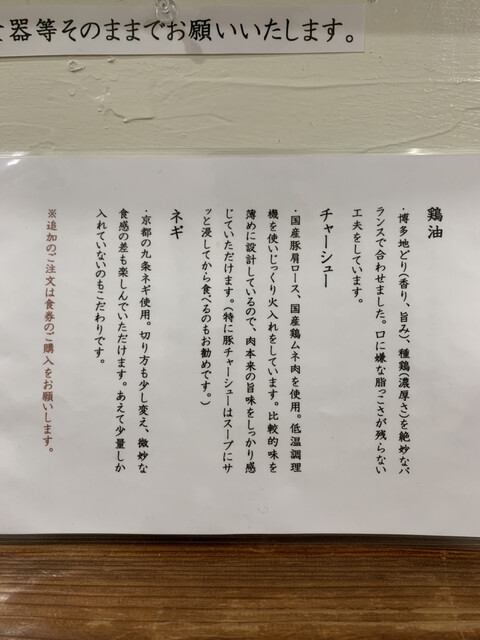 器等そのままでお願いいたします。
鶏油
・博多地どり(香り、旨み)、種鶏(濃厚さ)を絶妙なバ
ランスで合わせました。口に嫌な脂っこさが残らない
工夫をしています。
チャーシュー
・国産豚肩ロース、国産鶏ムネ肉を使用。低温調理
機を使いじっくり火入れをしています。比較的味を
薄めに設計しているので、肉本来の旨味をしっかり感
じていただけます。(特に豚チャーシューはスープにサ
ッと浸してから食べるのもお勧めです。)
ネギ
・京都の九条ネギ使用。切り方も少し変え、微妙な
食感の差も楽しんでいただけます。あえて少量しか
入れていないのもこだわりです。
※追加のご注文は食券のご購入をお願いします。